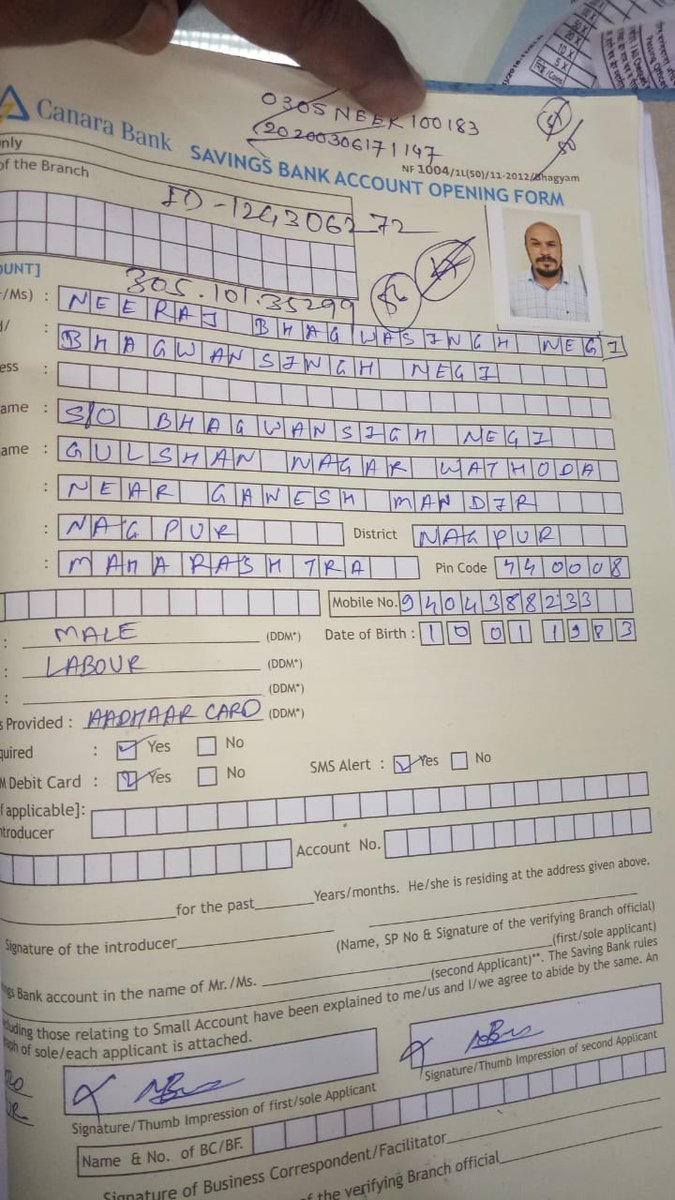 0305NEEK100183
(20200306171147
Canara Bank
NF 1004/1L(50)/11-2012/Bhagyam
SAVINGS BANK ACCOUNT OPENING FORM
of the Branch
ID-124306272
OUNT]
305.101.35299
/Ms) : NEERAJ BHAGWASINGH NEGI
d/ : BHAGWANSINGH NEGI
ess :
ame : S/O BHAGWANSIGH NEGI
ame : GULSHAN NAGAR WATHODA
: NEAR GANESH MANDIR
: NAGPUR District NAGPUR
: MAHARASHTRA Pin Code 440008
Mobile No. 9404388233
: MALE (DDM*) Date of Birth : 10 01 1983
: LABOUR (DDM*)
: (DDM*)
s Provided : AADHAAR CARD (DDM*)
quired : Yes No
M Debit Card : Yes No SMS Alert : Yes No
f applicable]:
ntroducer
Account No.
for the past Years/months. He/she is residing at the address given above.
Signature of the introducer
(Name, SP No & Signature of the verifying Branch official)
ngs Bank account in the name of Mr./Ms. (first/sole applicant)
(second Applicant)**. The Saving Bank rules
cluding those relating to Small Account have been explained to me/us and I/we agree to abide by the same. An
aph of sole/each applicant is attached.
Signature/Thumb Impression of first/sole Applicant
Signature/Thumb Impression of second Applicant
Name & No. of BC/BF.
Signature of Business Correspondent/Facilitator
of the verifying Branch official